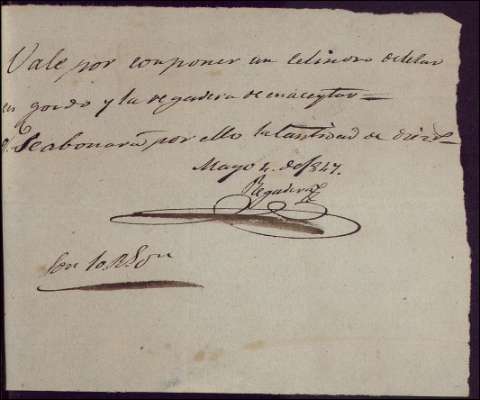 Vale por componer un Cilindro de telar
en gordo y la regadera de en aceytar=
Se abonará por ello la Cantidad de diez
Mayo 4. de 1847.
Regadera
Son 10. R.s